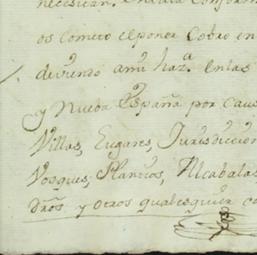 necesitan. 
os cometo el poner Cobro en
deviendo a mi haz.ª en las
y Nueba España por caus
Villas, Lugares, Jurisdiccion
Vosques, Plantios, Alcabalas
Dr̃os. y otros qualesquier co